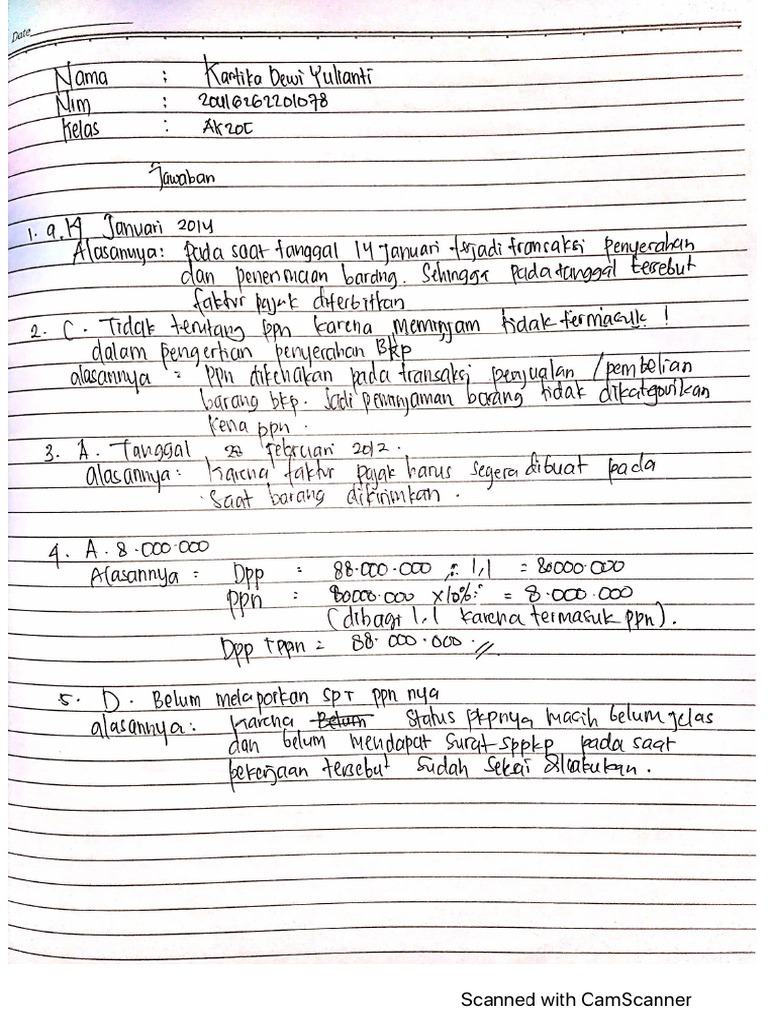 Date
Nama : Kartika Dewi Yulianti
Nim : 20416262201078
Kelas : AK20C
Jawaban
1. a. 14 Januari 2014
Alasannya: Pada saat tanggal 14 Januari terjadi transaksi penyerahan
dan penerimaan barang. Sehingga pada tanggal tersebut
faktur pajak diterbitkan
2. C. Tidak terutang ppn karena Meminjam tidak termasuk !
dalam pengertian penyerahan BKP
alasannya = PPN dikenakan pada transaksi penjualan / pembelian
barang bkp. Jadi peminjaman barang tidak dikategorikan
kena ppn.
3. A. Tanggal 28 Februari 2012.
alasannya: Karena faktur pajak harus segera dibuat pada
saat barang dikirimkan.
4. A. 8.000.000
Alasannya = Dpp : 88.000.000 : 1,1 = 80000.000
ppn : 80000.000 x10% = 8.000.000
(dibagi 1,1 karena termasuk ppn).
Dpp + ppn = 88.000.000.
5. D. Belum melaporkan SPT ppn nya
alasannya: Karena Belum Status pkpnya masih belum jelas
dan belum mendapat surat sppkp pada saat
pekerjaan tersebut sudah selesai dilakukan.
Scanned with CamScanner